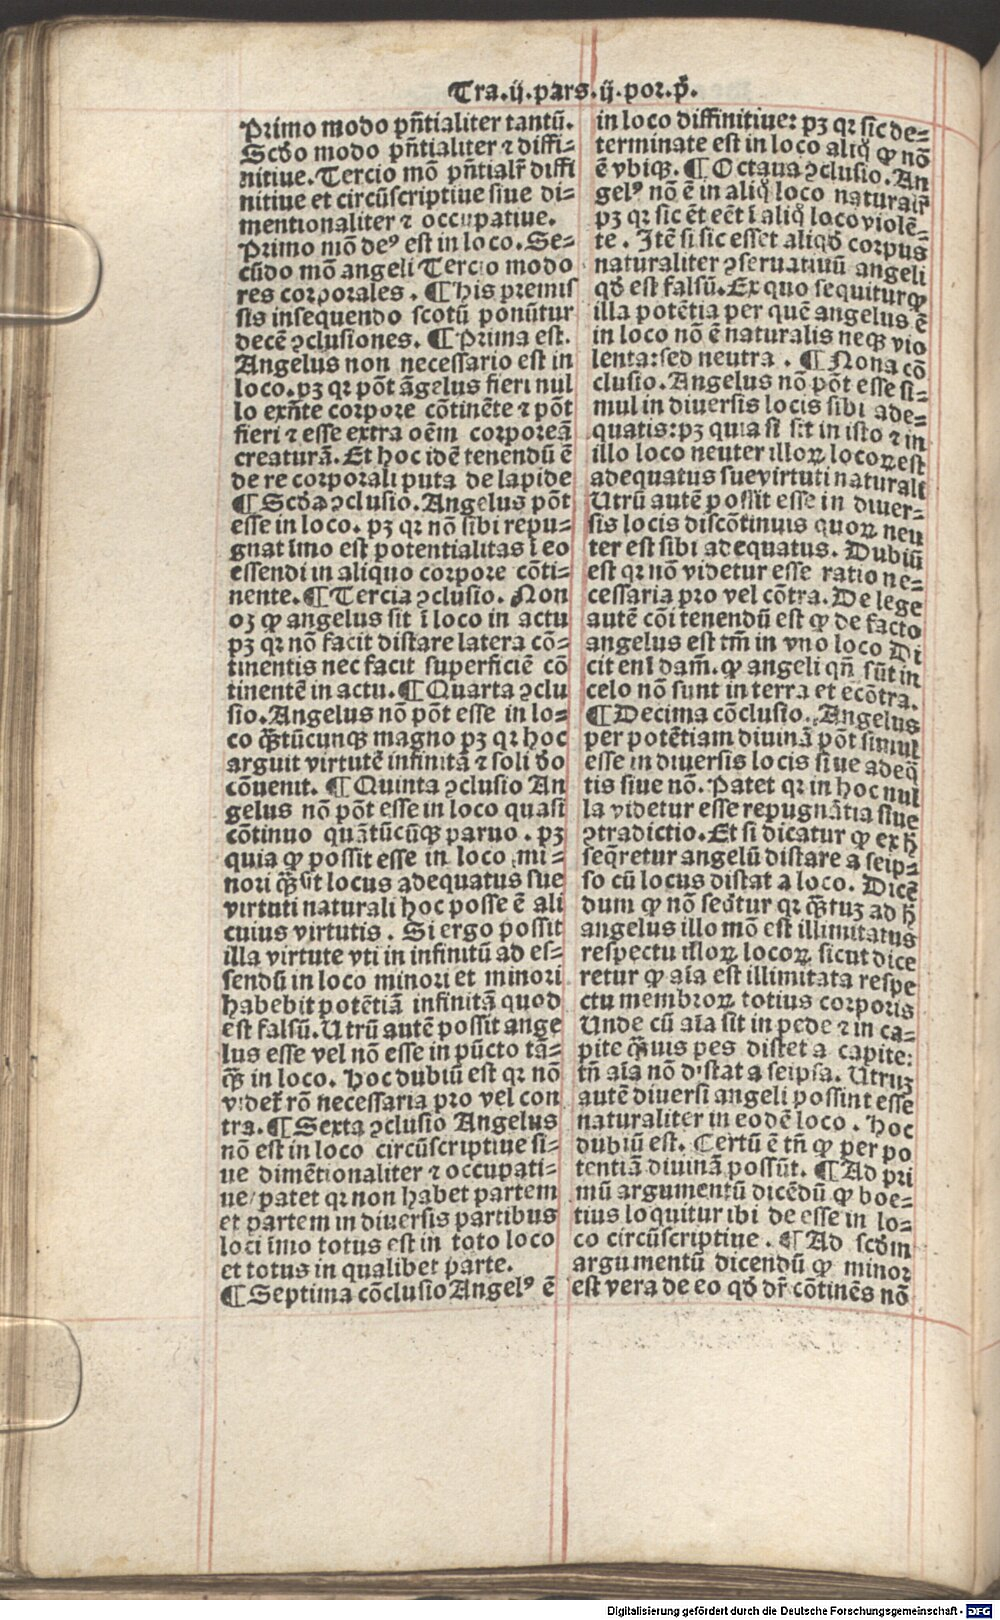 Tra.ij.pars.ij.por.p̃.
Primo modo pn̄tialiter tantū.
Scd̄o modo pn̄tialiter ⁊ diffi-
nitiue. Tercio mō pn̄tialr̄ diffi
nitiue et circūscriptiue siue di-
mentionaliter ⁊ occupatiue.
Primo mō deꝰ est in loco. Se-
cūdo mō angeli Tercio modo
res corporales. ¶ His premis
sis insequendo scotū ponūtur
decē ꝯclusiones. ¶ Prima est.
Angelus non necessario est in
loco. pꝫ qꝛ pōt āgelus fieri nul
lo exn̄te corpore cōtinēte ⁊ pōt
fieri ⁊ esse extra oēm corporeā
creaturā. Et hoc idē tenendū ē
de re corporali puta de lapide
¶ Scd̄a ꝯclusio. Angelus pōt
esse in loco. pꝫ qꝛ nō sibi repu-
gnat īmo est potentialitas ī eo
essendi in aliquo corpore cōti-
nente. ¶ Tercia ꝯclusio. Non
oꝫ ꝙ angelus sit ī loco in actu
pꝫ qꝛ nō facit distare latera cō-
tinentis nec facit superficiē cō
tinentē in actu. ¶ Quarta ꝯclu
sio. Angelus nō pōt esse in lo-
co q̄ꝫtūcunqꝫ magno pꝫ qꝛ hoc
arguit virtutē infinitā ⁊ soli d̄o
cōuenit. ¶ Quinta ꝯclusio An
gelus nō pōt esse in loco quasi
cōtinuo quātūcūqꝫ paruo. pꝫ
quia ꝙ possit esse in loco mi-
nori q̄ꝫ sit locus adequatus sue
virtuti naturali hoc posse ē ali
cuius virtutis. Si ergo possit
illa virtute vti in infinitū ad es-
sendū in loco minori et minori
habebit potētiā infinitā quod
est falsū. Utrū autē possit ange
lus esse vel nō esse in pūcto tā-
q̄ꝫ in loco. hoc dubiū est qꝛ nō
videt̄ rō necessaria pro vel con
tra. ¶ Sexta ꝯclusio Angelus
nō est in loco circūscriptiue si-
ue dimētionaliter ⁊ occupati-
ue/ patet qꝛ non habet partem
et partem in diuersis partibus
loci īmo totus est in toto loco
et totus in qualibet parte.
¶ Septima cōclusio Angelꝰ ē
in loco diffinitiue: pꝫ qꝛ sic de-
terminate est in loco aliq̊ ꝙ nō
ē vbiqꝫ. ¶ Octaua ꝯclusio. An
gelꝰ nō ē in aliq̊ loco naturalr̄
pꝫ qꝛ sic ēt eēt ī aliq̊ loco violē-
te. Itē si sic esset aliqd̄ corpus
naturaliter ꝯseruatiuū angeli
qd̄ est falsū. Ex quo sequitur ꝙ
illa potētia per quē angelus ē
in loco nō ē naturalis neqꝫ vio
lenta: sed neutra. ¶ Nona cō
clusio. Angelus nō pōt esse si-
mul in diuersis locis sibi ade-
quatis: pꝫ quia si sit in isto ⁊ in
illo loco neuter illoꝝ locoꝝ est
adequatus sue virtuti naturali
Utrū autē possit esse in diuer-
sis locis discōtinuis quoꝝ neu
ter est sibi adequatus. Dubiū
est qꝛ nō videtur esse ratio ne-
cessaria pro vel cōtra. De lege
autē cōi tenendū est ꝙ de facto
angelus est tm̄ in vno loco Di
cit enī dam̄. ꝙ angeli qn̄ sūt in
celo nō sunt in terra et ecōtra.
¶ Decima cōclusio. Angelus
per potētiam diuinā pōt simul
esse in diuersis locis siue adeq̄
tis siue nō. Patet qꝛ in hoc nul
la videtur esse repugnātia siue
ꝯtradictio. Et si dicatur ꝙ ex h̄
seq̄retur angelū distare a seip-
so cū locus distat a loco. Dicē
dum ꝙ nō seq̄tur qꝛ q̄ꝫtuꝫ ad h̄
angelus illo mō est illimitatus
respectu illoꝝ locoꝝ sicut dice
retur ꝙ aīa est illimitata respe
ctu membroꝝ totius corporis
Unde cū aīa sit in pede ⁊ in ca-
pite q̄ꝫuis pes distet a capite:
tn̄ aīa nō distat a seipsa. Utruꝫ
autē diuersi angeli possint esse
naturaliter in eodē loco. Hoc
dubiū est. Certū ē tn̄ ꝙ per po
tentiā diuinā possūt. ¶ Ad pri
mū argumentū dicēdū ꝙ boe-
tius loquitur ibi de esse in lo-
co circūscriptiue. ¶ Ad scd̄m
argumentū dicendū ꝙ minor
est vera de eo qd̄ dr̄ cōtinēs nō
Digitalisierung gefördert durch die Deutsche Forschungsgemeinschaft - DFG